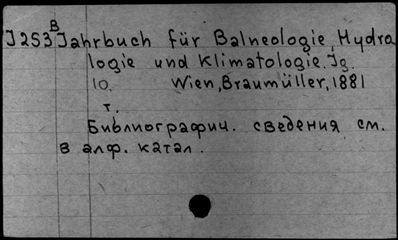 В
J253 Jahrbuch für Balneologie, Hydro
logie und Klimatologie. Jg.
10. Wien, Braumüller, 1881
т.
Библиографич. сведения см.
в алф. катал.